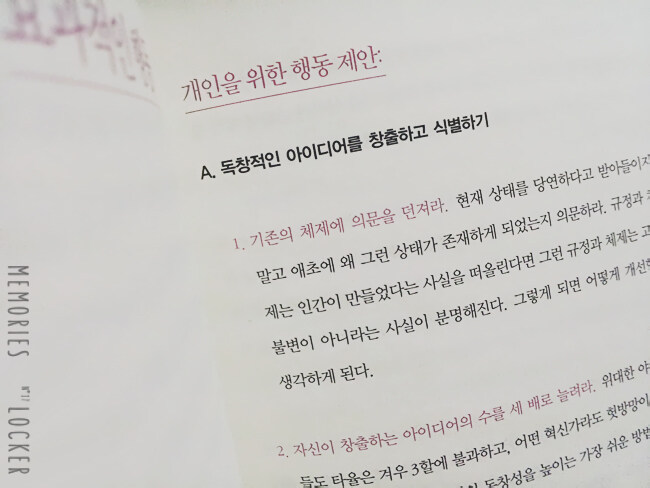 개인을 위한 행동 제안:
A. 독창적인 아이디어를 창출하고 식별하기
1. 기존의 체제에 의문을 던져라. 현재 상태를 당연하다고 받아들이지
말고 애초에 왜 그런 상태가 존재하게 되었는지 의문하라. 규정과
제는 인간이 만들었다는 사실을 떠올린다면 그런 규정과 체제는 고
불변이 아니라는 사실이 분명해진다. 그렇게 되면 어떻게
생각하게 된다.
2. 자신이 창출하는 아이디어의 수를 세 배로 늘려라. 위대한 야
들도 타율은 겨우 3할에 불과하고, 어떤 혁신가라도 헛방망이
독창성을 높이는 가장 쉬운 방법
MEMORIES LOCKER